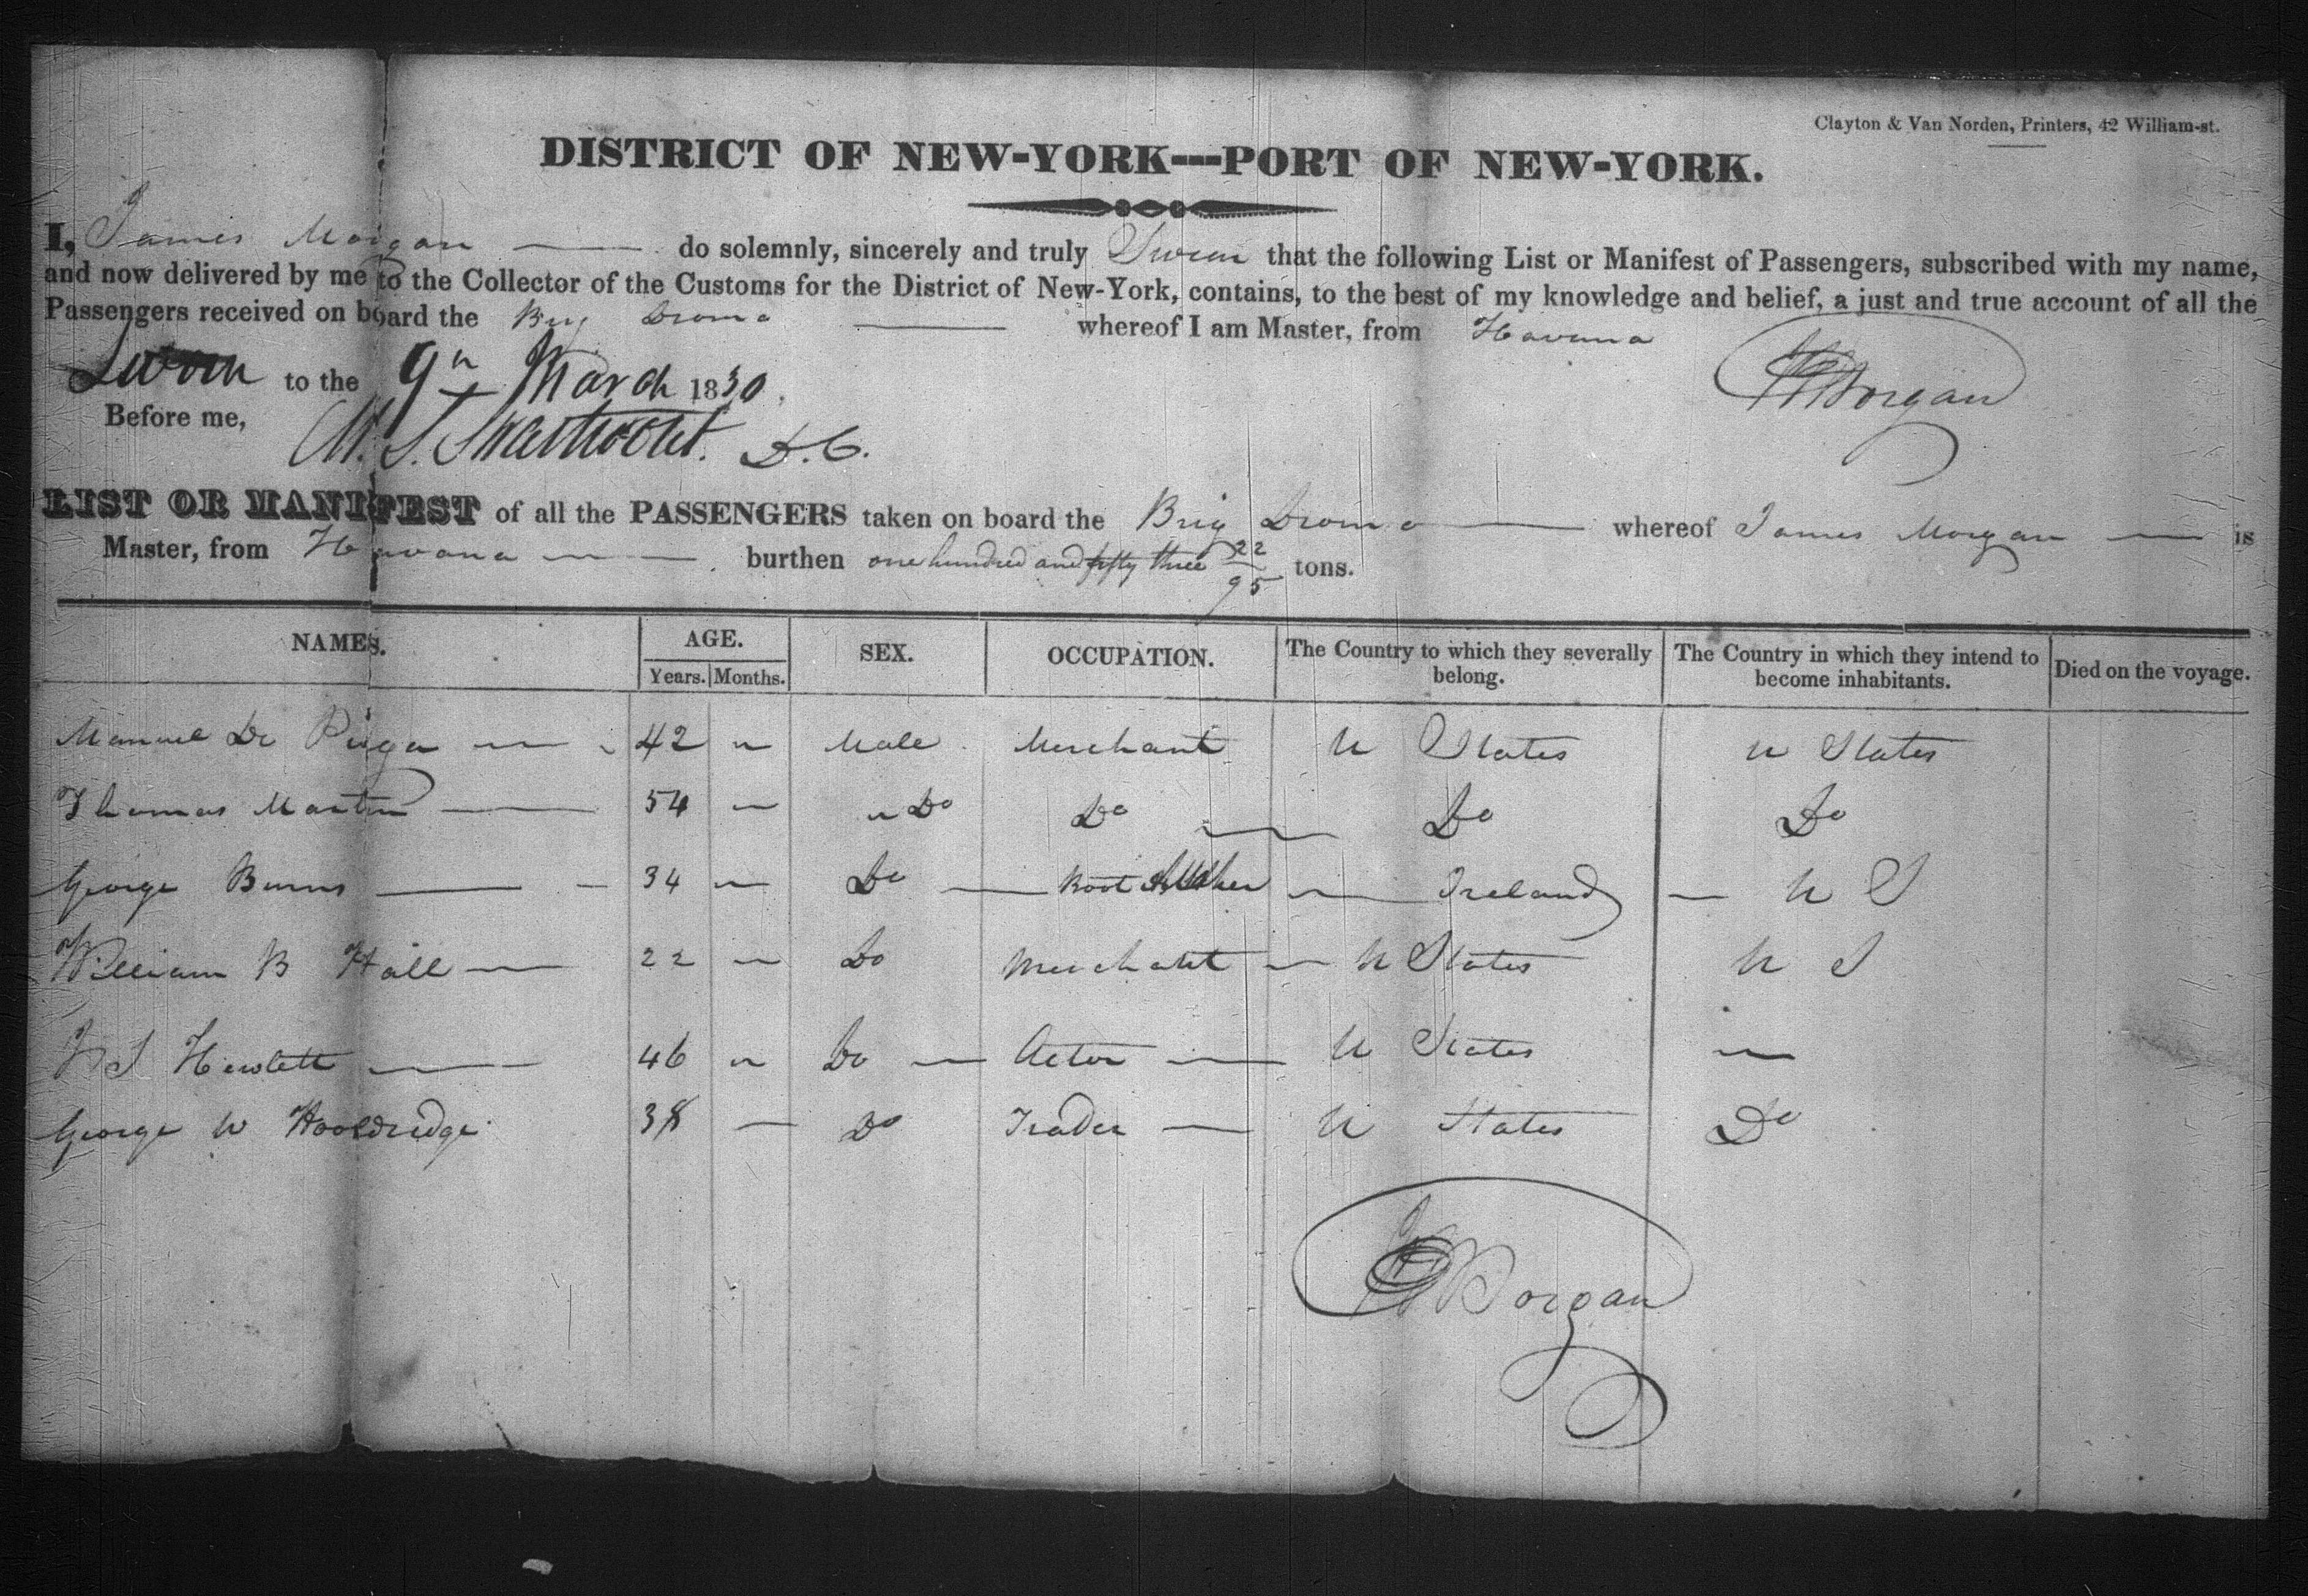 Clayton & Van Norden, Printers, 42 William-st.
DISTRICT OF NEW-YORK---PORT OF NEW-YORK.
I, James Morgan do solemnly, sincerely and truly Swear that the following List or Manifest of Passengers, subscribed with my name,
and now delivered by me to the Collector of the Customs for the District of New-York, contains, to the best of my knowledge and belief, a just and true account of all the
Passengers received on board the Brig whereof I am Master, from Havana
Sworn to the 9th March 1830.
Morgan
Before me,
M. S. Swartwout. D.C.
LIST OR MANIFEST of all the PASSENGERS taken on board the Brig whereof James Morgan is
Master, from Havana burthen one hundred and fifty three 22/95 tons.
NAMES. AGE. SEX. OCCUPATION. The Country to which they severally belong. The Country in which they intend to become inhabitants. Died on the voyage.
Years. Months.
Manuel De 42 Male Merchant U States U States
Thomas Martin 54 Do Do Do Do
George Burns 34 Do Boot Ireland U S
William B Hall 22 Do Merchant U States U S
Hewlett 46 Do Actor U States
George W Hooldridge 38 Do Trader U States Do
Morgan